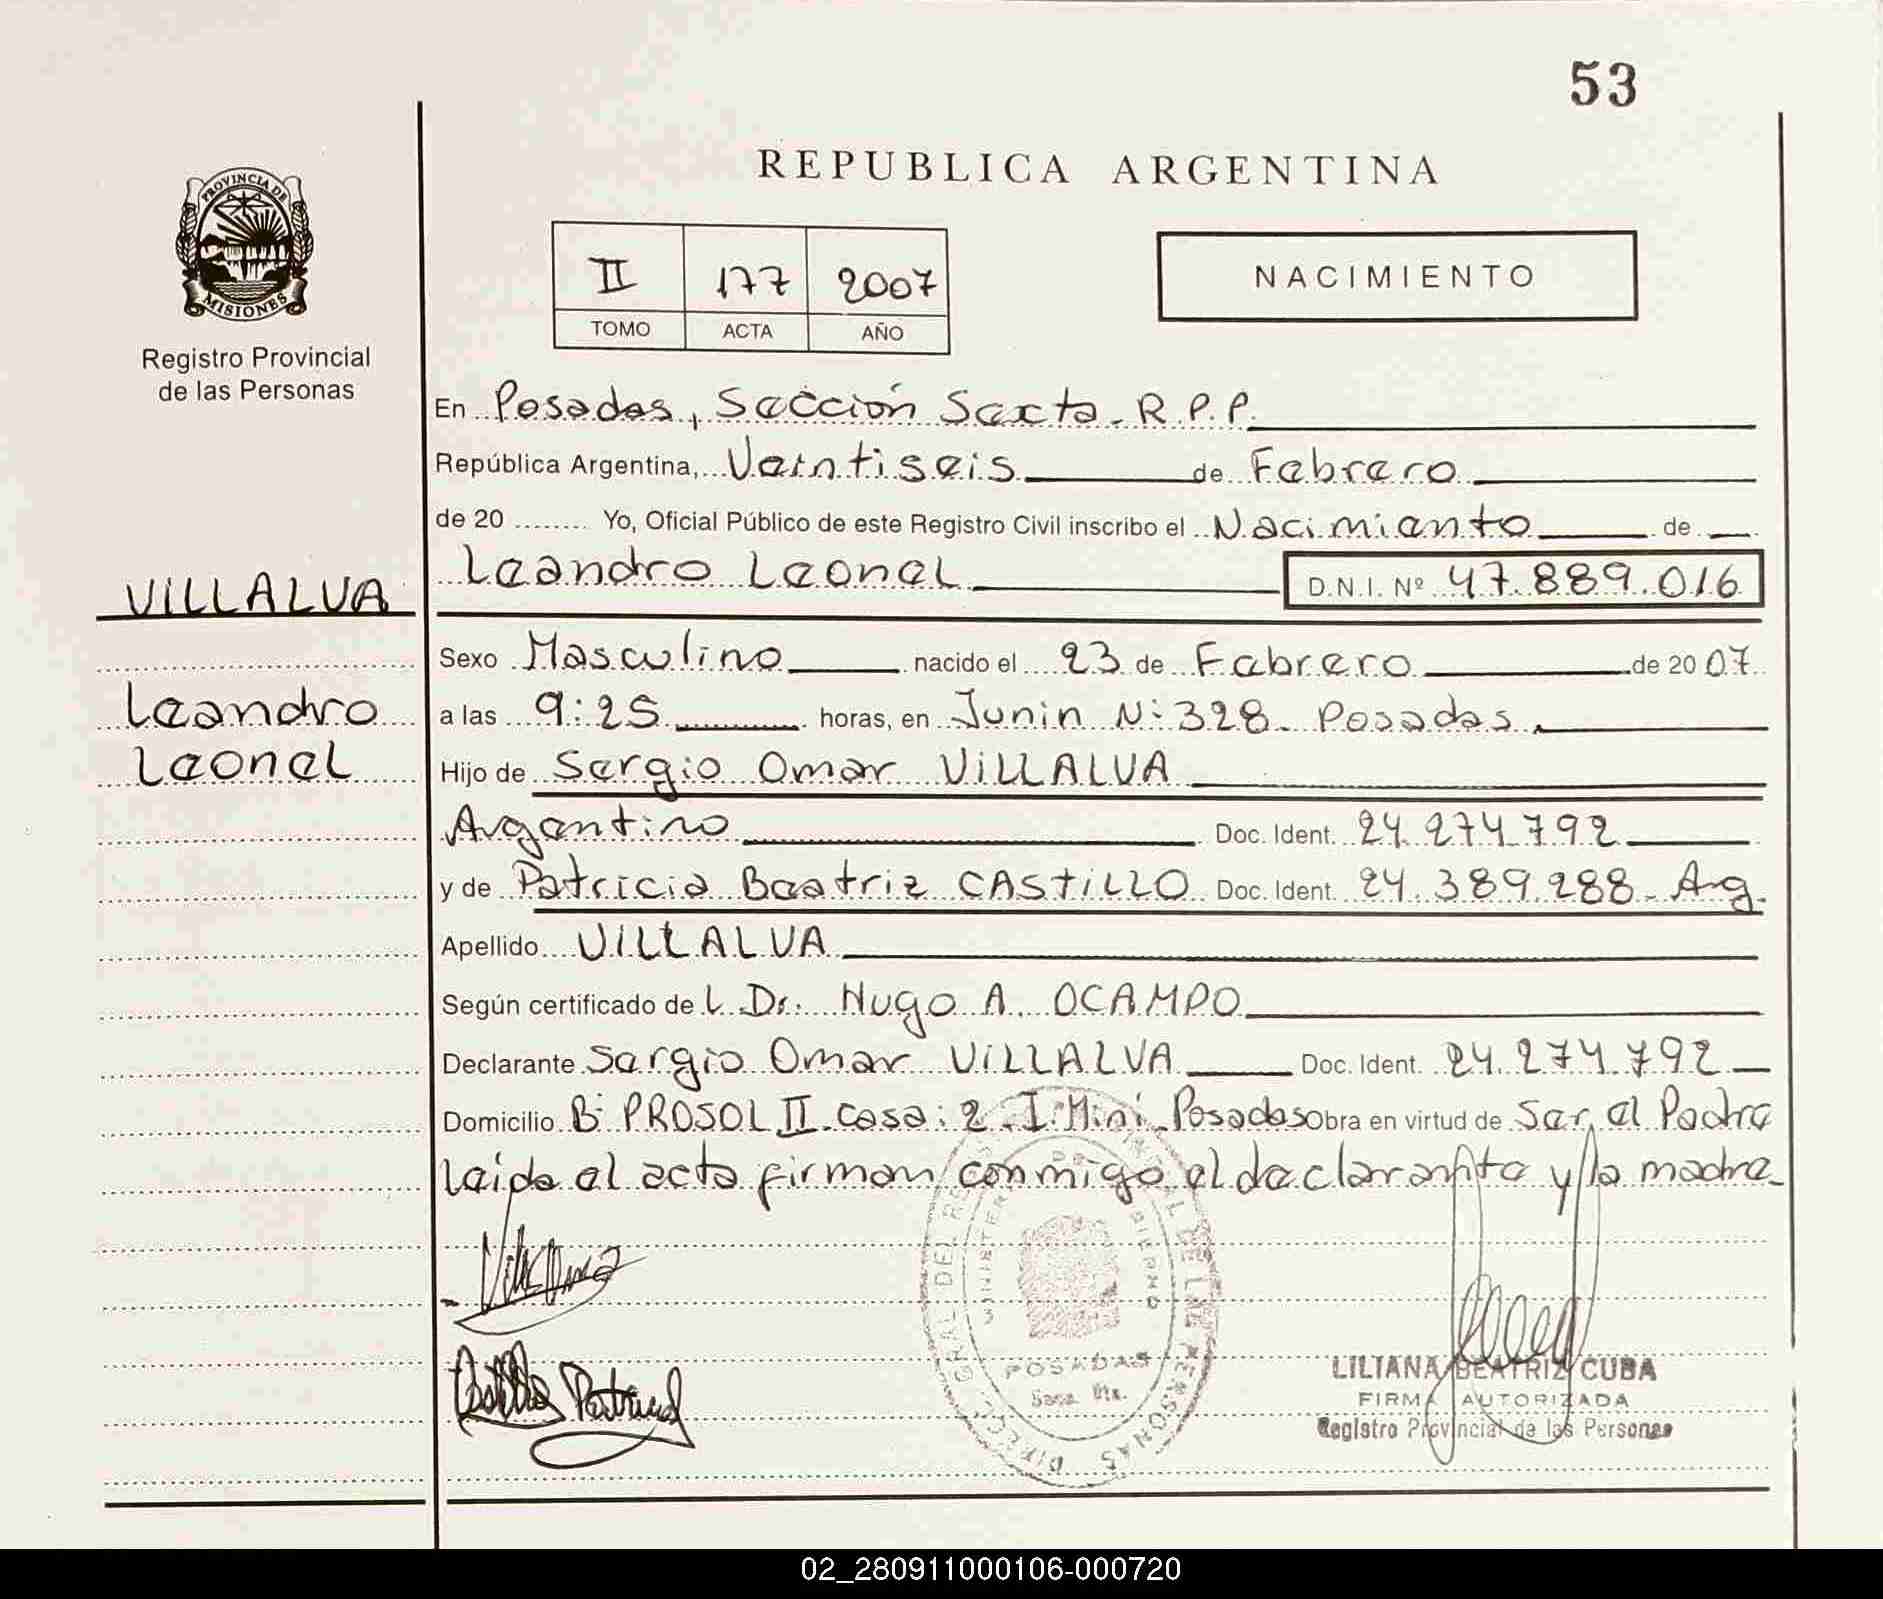 53
REPUBLICA ARGENTINA
PROVINCIA DE MISIONES
Registro Provincial
de las Personas
II 177 2007
TOMO ACTA AÑO
NACIMIENTO
En Posadas, Sección Sexta - R.P.P.
República Argentina, Veintiseis de Febrero
de 20 ........ Yo, Oficial Público de este Registro Civil inscribo el Nacimiento de
VILLALVA
Leandro Leonel D.N.I. Nº 47.889.016
Sexo Masculino nacido el 23 de Febrero de 2007
Leandro
a las 9:25 horas, en Junin N: 328 - Posadas
Leonel
Hijo de Sergio Omar VILLALVA
Argentino Doc. Ident. 24.274.792
y de Patricia Beatriz CASTILLO Doc. Ident. 24.389.288 - Arg.
Apellido VILLALVA
Según certificado de L Dr. Hugo A. OCAMPO
Declarante Sergio Omar VILLALVA Doc. Ident. 24.274.792
Domicilio B: PROSOL II - casa: 2 - I. Miní - Posadas Obra en virtud de Ser el Padre
leida el acta firman conmigo el declarante y la madre -
POSADAS
LILIANA BEATRIZ CUBA
FIRMA AUTORIZADA
Registro Provincial de las Personas
02_280911000106-000720